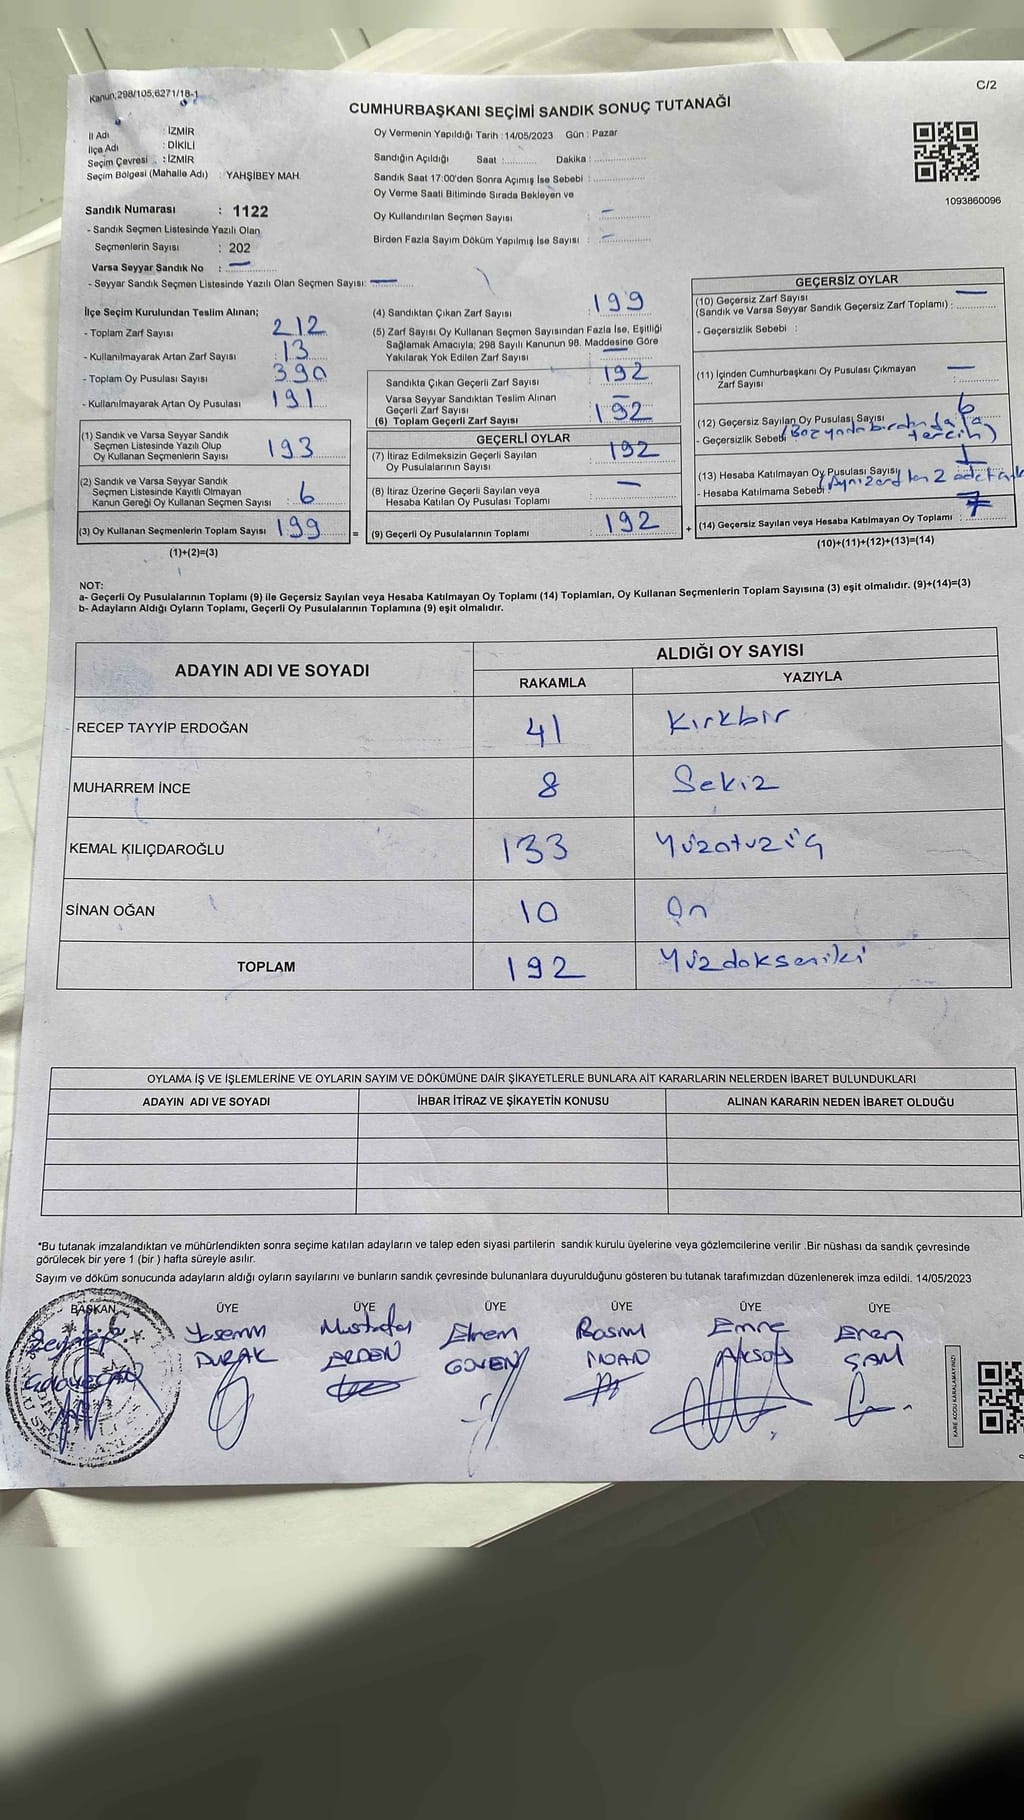 Kanun;298/105,6271/18-1
C/2
CUMHURBAŞKANI SEÇİMİ SANDIK SONUÇ TUTANAĞI
İl Adı : İZMİR
İlçe Adı : DİKİLİ
Seçim Çevresi : İZMİR
Seçim Bölgesi (Mahalle Adı) : YAHŞİBEY MAH.
Oy Vermenin Yapıldığı Tarih : 14/05/2023 Gün : Pazar
Sandığın Açıldığı Saat :........... Dakika :................
Sandık Saat 17:00'den Sonra Açımış İse Sebebi :................
Oy Verme Saati Bitiminde Sırada Bekleyen ve
Oy Kullandırılan Seçmen Sayısı : –
Birden Fazla Sayım Döküm Yapılmış İse Sayısı : –
1093860096
Sandık Numarası : 1122
- Sandık Seçmen Listesinde Yazılı Olan
Seçmenlerin Sayısı : 202
Varsa Seyyar Sandık No : –
- Seyyar Sandık Seçmen Listesinde Yazılı Olan Seçmen Sayısı: –
İlçe Seçim Kurulundan Teslim Alınan;
- Toplam Zarf Sayısı : 212
- Kullanılmayarak Artan Zarf Sayısı : 13
- Toplam Oy Pusulası Sayısı : 390
- Kullanılmayarak Artan Oy Pusulası : 191
(1) Sandık ve Varsa Seyyar Sandık
Seçmen Listesinde Yazılı Olup
Oy Kullanan Seçmenlerin Sayısı : 193
(2) Sandık ve Varsa Seyyar Sandık
Seçmen Listesinde Kayıtlı Olmayan
Kanun Gereği Oy Kullanan Seçmen Sayısı : 6
(3) Oy Kullanan Seçmenlerin Toplam Sayısı : 199 =
(1)+(2)=(3)
(4) Sandıktan Çıkan Zarf Sayısı : 199
(5) Zarf Sayısı Oy Kullanan Seçmen Sayısından Fazla İse, Eşitliği
Sağlamak Amacıyla; 298 Sayılı Kanunun 98. Maddesine Göre
Yakılarak Yok Edilen Zarf Sayısı : –
Sandıkta Çıkan Geçerli Zarf Sayısı : 192
Varsa Seyyar Sandıktan Teslim Alınan
Geçerli Zarf Sayısı : –
(6) Toplam Geçerli Zarf Sayısı : 192
GEÇERLİ OYLAR
(7) İtiraz Edilmeksizin Geçerli Sayılan
Oy Pusulalarının Sayısı : 192
(8) İtiraz Üzerine Geçerli Sayılan veya
Hesaba Katılan Oy Pusulası Toplamı : –
(9) Geçerli Oy Pusulalarının Toplamı : 192 +
GEÇERSİZ OYLAR
(10) Geçersiz Zarf Sayısı
(Sandık ve Varsa Seyyar Sandık Geçersiz Zarf Toplamı) : –
- Geçersizlik Sebebi :
(11) İçinden Cumhurbaşkanı Oy Pusulası Çıkmayan
Zarf Sayısı : –
(12) Geçersiz Sayılan Oy Pusulası Sayısı : 6
- Geçersizlik Sebebi
tercih)
(13) Hesaba Katılmayan Oy Pusulası Sayısı : 1
- Hesaba Katılmama Sebebi : (Aynı zarftan 2 adet
(14) Geçersiz Sayılan veya Hesaba Katılmayan Oy Toplamı : 7
(10)+(11)+(12)+(13)=(14)
NOT:
a- Geçerli Oy Pusulalarının Toplamı (9) ile Geçersiz Sayılan veya Hesaba Katılmayan Oy Toplamı (14) Toplamları, Oy Kullanan Seçmenlerin Toplam Sayısına (3) eşit olmalıdır. (9)+(14)=(3)
b- Adayların Aldığı Oyların Toplamı, Geçerli Oy Pusulalarının Toplamına (9) eşit olmalıdır.
ADAYIN ADI VE SOYADI ALDIĞI OY SAYISI
RAKAMLA YAZIYLA
RECEP TAYYİP ERDOĞAN 41 Kırkbir
MUHARREM İNCE 8 Sekiz
KEMAL KILIÇDAROĞLU 133 Yüzotuzüç
SİNAN OĞAN 10 On
TOPLAM 192 Yüzdoksaniki
OYLAMA İŞ VE İŞLEMLERİNE VE OYLARIN SAYIM VE DÖKÜMÜNE DAİR ŞİKAYETLERLE BUNLARA AİT KARARLARIN NELERDEN İBARET BULUNDUKLARI
ADAYIN ADI VE SOYADI İHBAR İTİRAZ VE ŞİKAYETİN KONUSU ALINAN KARARIN NEDEN İBARET OLDUĞU
*Bu tutanak imzalandıktan ve mühürlendikten sonra seçime katılan adayların ve talep eden siyasi partilerin sandık kurulu üyelerine veya gözlemcilerine verilir .Bir nüshası da sandık çevresinde
görülecek bir yere 1 (bir ) hafta süreyle asılır.
Sayım ve döküm sonucunda adayların aldığı oyların sayılarını ve bunların sandık çevresinde bulunanlara duyurulduğunu gösteren bu tutanak tarafımızdan düzenlenerek imza edildi. 14/05/2023
BAŞKAN ÜYE ÜYE ÜYE ÜYE ÜYE ÜYE
Yasemin Mustafa Ekrem Rasim Emre Eren
DURAK ERDEN GÜVEN Aksoy ŞAM
KARE KODU KARALAMAYINIZ!